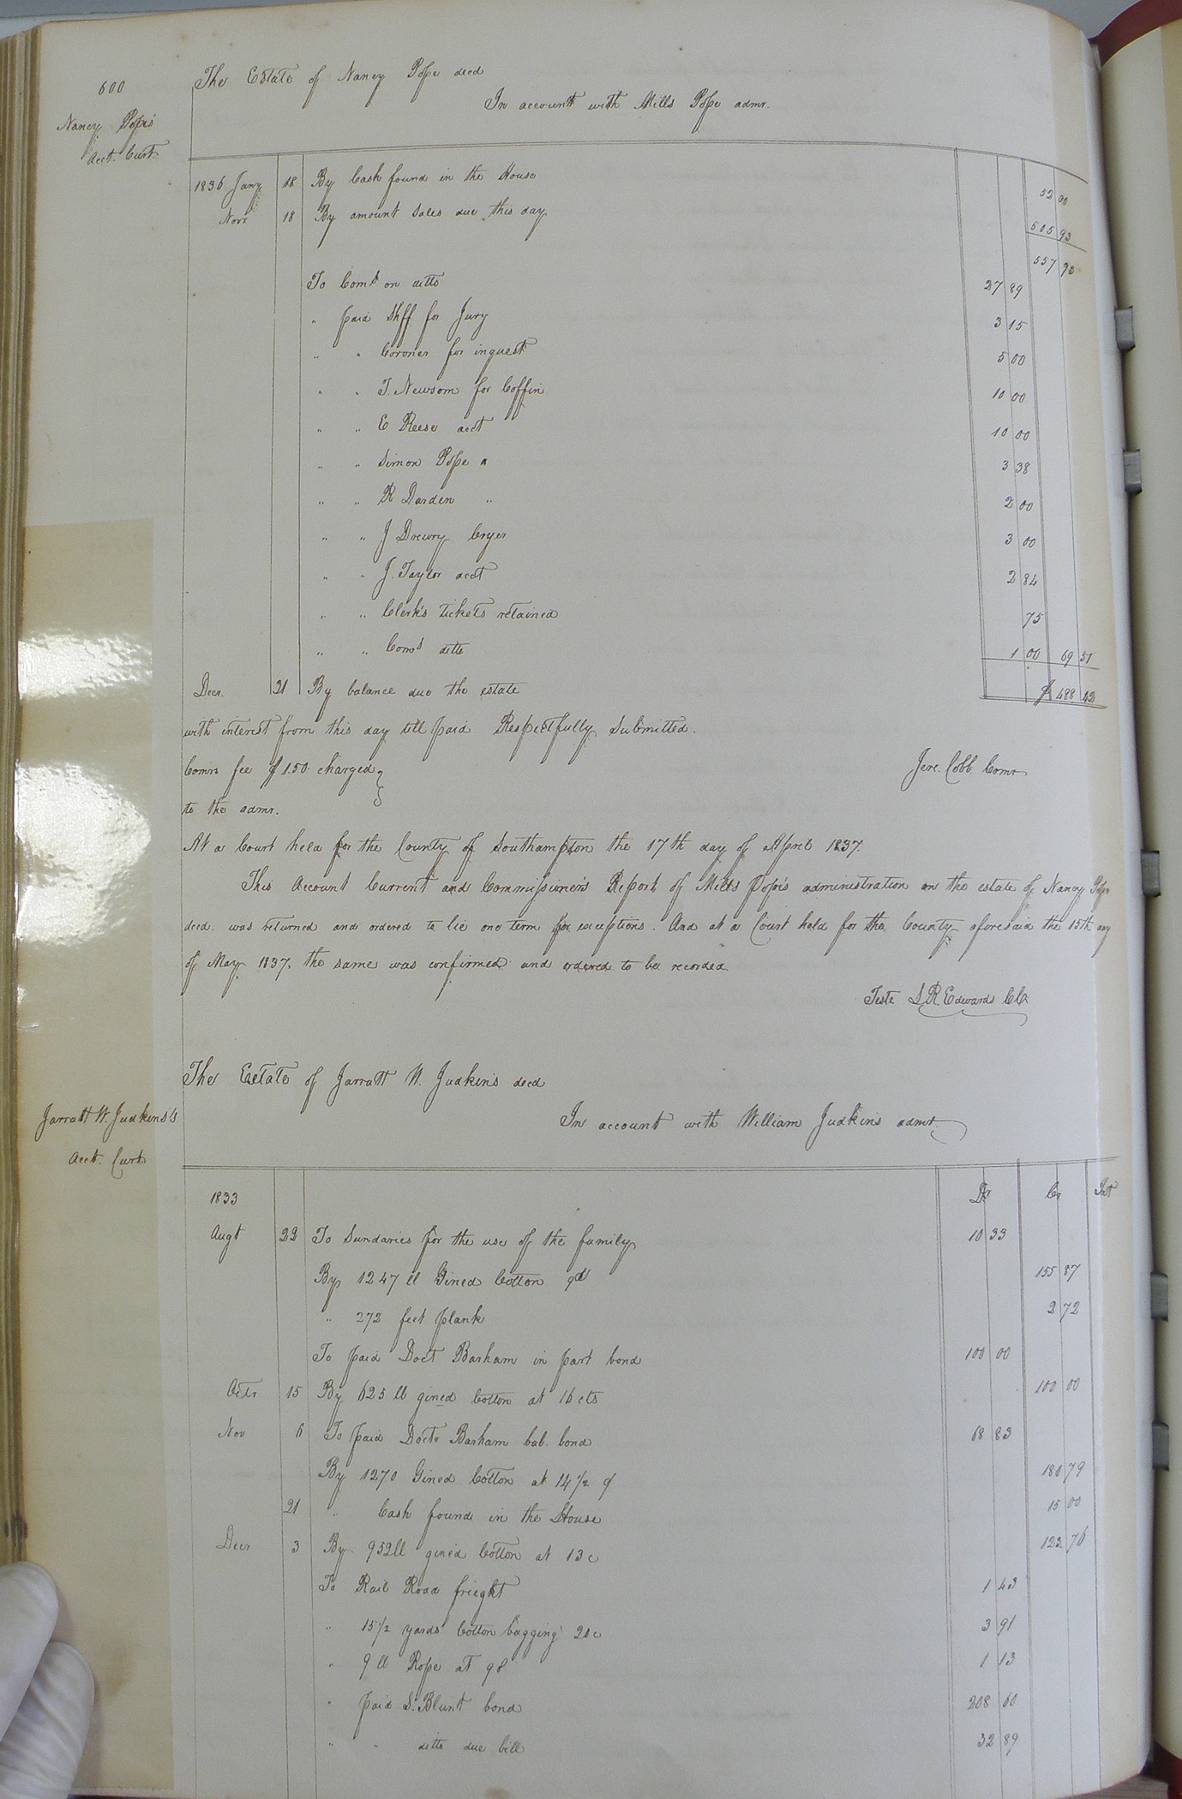 600
The Estate of Nancy Pope decd
In account with Mills Pope admr.
Nancy Pope's
Acct. Curt.
1836 Jany 18 By Cash found in the House 52 00
Novr 18 By amount Sales due this day. 505 93
557 93
To Coms on ditto 27 89
" paid Shff for Jury 3 15
" " Coroner for inquest 5 00
" " T. Newsom for Coffin 10 00
" " E Reese acct 10 00
" " Simon Pope " 3 38
" " R Darden " 2 00
" " J Drewry Cryer 3 00
" " J. Taylor acct 2 84
" " Clerk's tickets retained 75
" " Coms ditto 1 00 69 51
Decr. 21 By balance due the estate $ 488 42
with interest from this day till paid Respectfully Submitted.
Comrs fee $1.50 charged
to the admr.
Jere. Cobb Comr
At a Court held for the County of Southampton the 17th day of April 1837.
This Account Current and Commissioner's Report of Mills Pope's administration on the estate of Nancy Pope
decd. was returned and ordered to lie one term for exceptions. And at a Court held for the County aforesaid the 15th day
of May 1837. the same was confirmed and ordered to be recorded.
Teste L R Edwards CC
The Estate of Jarratt W. Judkins decd
In account with William Judkins admr
Jarratt W. Judkins's
Acct. Curt.
1833 Dr Cr Int
Augt 22 To Sundaries for the use of the family 10 33
By 1247 ll Gined Cotton 155 87
" 272 feet plank 2 72
To paid Doct Barham in part bond 100 00
Octr 15 By 625 ll gined Cotton at 16 cts 100 00
Nov 6 To paid Doctr Barham bal. bond 68 83
By 1270 Gined Cotton at 14 1/2 180 79
21 " Cash found in the House 15 00
Decr 3 By 952 ll gined Cotton at 13 c 122 76
To Rail Road frieght 1 43
" 15 1/2 yards Cotton bagging 3 91
" 9 ll Rope at 1 13
" paid S. Blunt bond 208 60
" " ditto due bill 32 89